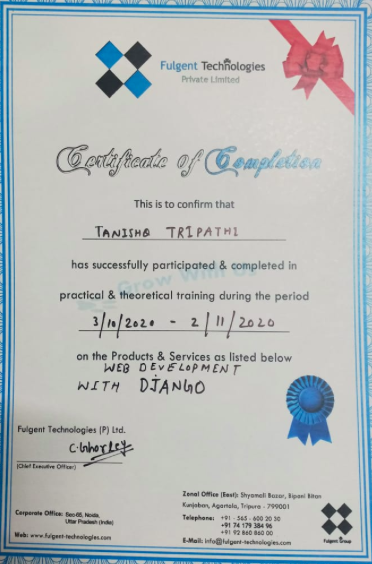 Fulgent Technologies
Private Limited
Certificate of Completion
This is to confirm that
TANISHQ TRIPATHI
has successfully participated & completed in
Grow With Us
practical & theoretical training during the period
3/10/2020 - 2/11/2020
on the Products & Services as listed below
WEB DEVELOPMENT
WITH DJANGO
Fulgent Technologies (P) Ltd.
(Chief Executive Officer)
Corporate Office: Sec-65, Noida,
Uttar Pradesh (India)
Web: www.fulgent-technologies.com
Zonal Office (East): Shyamali Bazar, Bipani Bitan
Kunjaban, Agartala, Tripura - 799001
Telephone: +91 - 565 - 600 20 30
+91 74 179 384 96
+91 92 860 860 00
E-Mail: info@fulgent-technologies.com
Fulgent Group